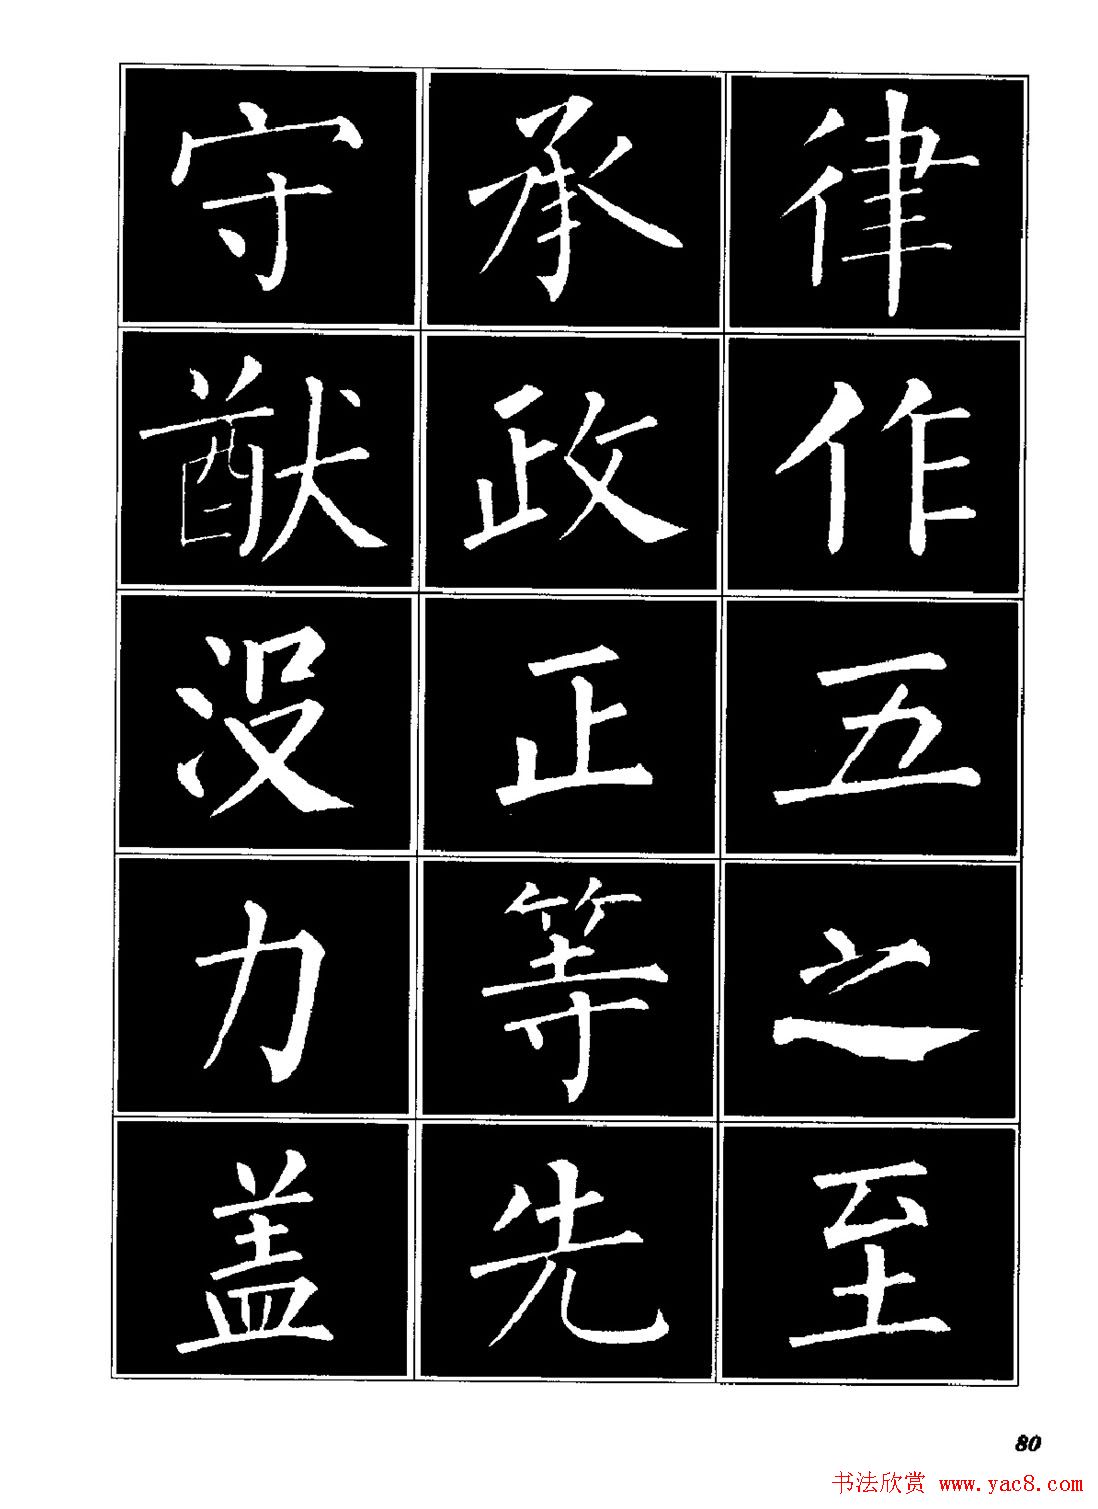 律作五之至
承政正等先
守猷没力盖
80
书法欣赏 www.yac8.com